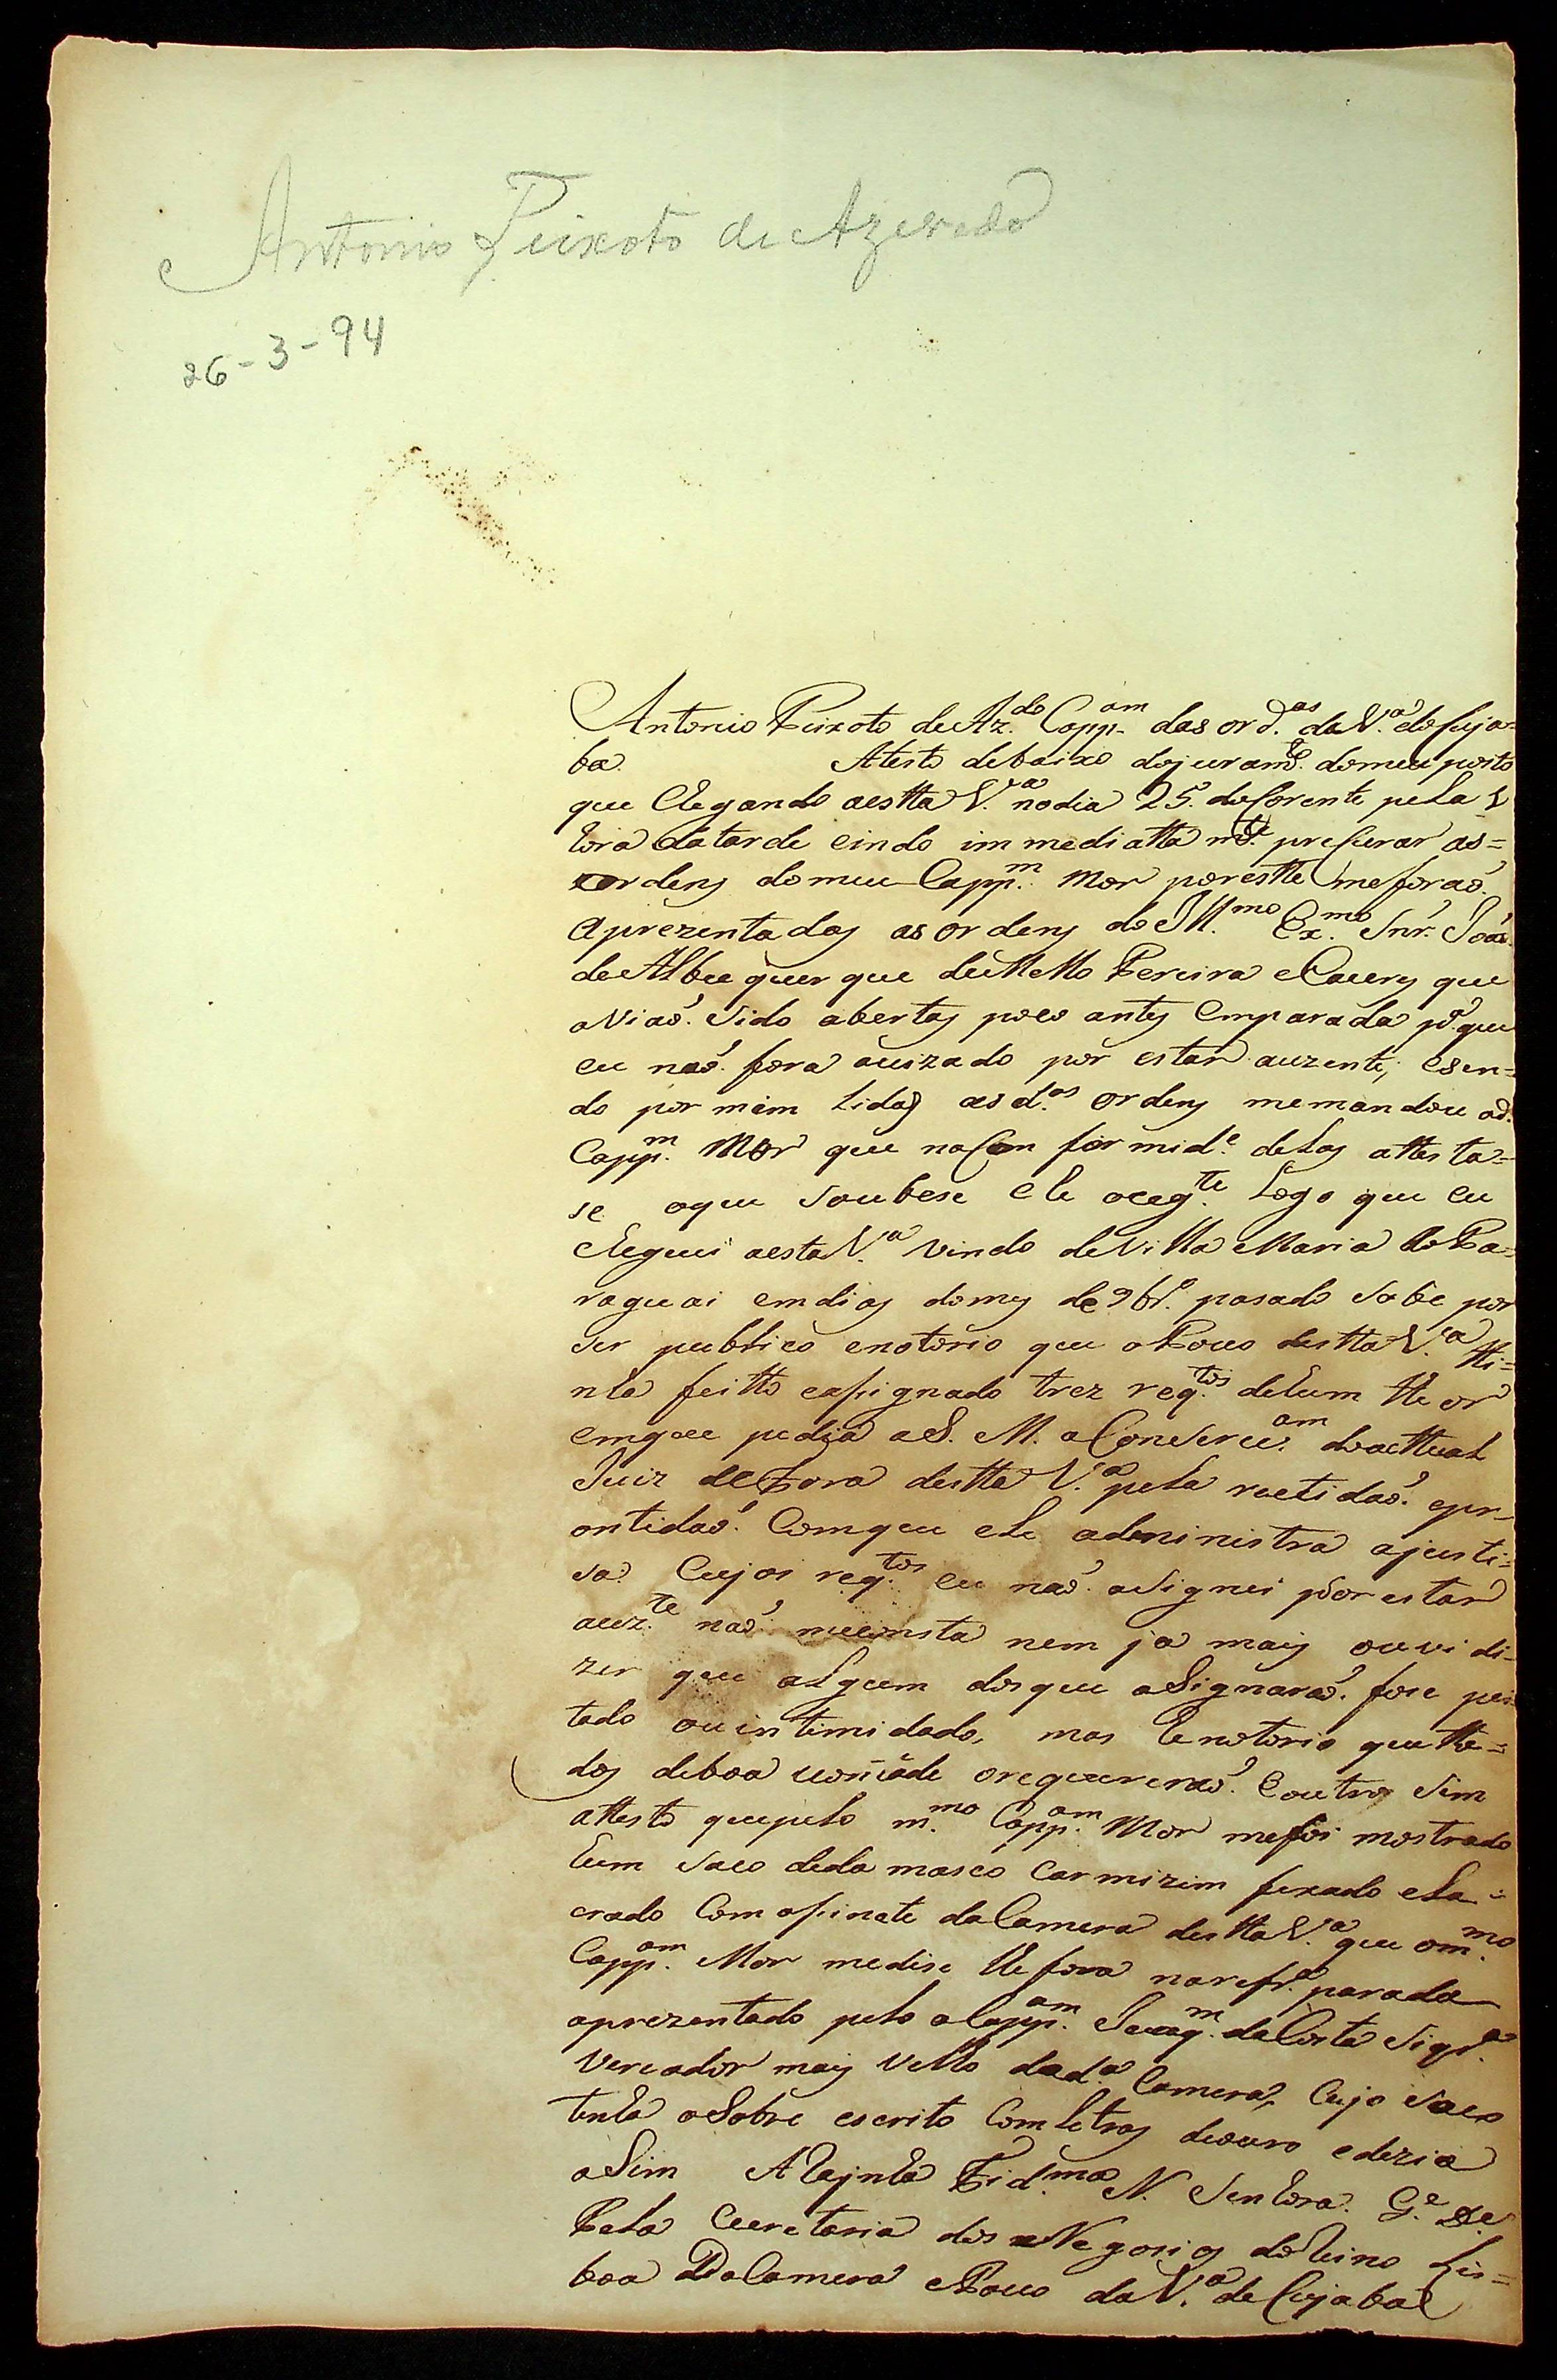 Antonio Peixoto de Azevedo
26-3-94
Antonio Peixoto de Az.do Capp.am das ord.as da V.a do Cuja=
ba. Atesto debaixo dojuram.to domeu posto
que chegando aestta V.a nodia 25. do Corente pela
hora da tarde eindo immediatta m.te procurar as=
ordens domeu Capp.m Mor porestte me foraõ.
aprezentadas as ordens do Ill.mo Ex.mo Snr. Joaõ
de Albuquerque de Mello Pereira eCaceres que
aviaõ. sido abertas poco antes emparada p.a que
eu naõ. fora avizado por estar auzente, esen=
do por mim Lidas as d.as ordens memandou od.
Capp.m Mor que naConformid.e delas attesta=
se oque soubese e he oceg.te Logo que eu
cheguei aesta V.a vindo de Villa Maria do Pa=
raguai emdias domes de 9br.o pasado sobe por
ser publico enotorio que oPovo destta V.a tti=
nha feitto easignado trez req.tos dehum tteor
emque pedia aS. M. aConserv.am doacttual
Juiz de Fora destta V.a pela rectidaõ. epr=
ontidaõ. Comque ele administra ajusti=
sa. Cujos req.tos eu naõ. asignei por estar
auz.te naõ. meconsta nem ja mais ouvi di=
zer que algum dosque aSignaraõ. fose pei
tado ouintimidado, mas he notorio que tto=
dos deboa vontade orequereraõ. Eoutro sim
attesto quepelo m.mo Capp.am Mor mefoi mostrado
hum saco dedamasco Carmizim fexado ela=
crado Com osinete daCamera destta V.a que om.mo
Capp.am Mor medise lhe fora naref.a parada
aprezentado pelo oCapp.am Joaq.m da Costa Siqr.a
Vereador mais velho dad.a Camera, Cujo saco
tenha oSobre escrito Com Letras deouro edezia
aSim A Rajnha Fid.ma N. Senhora. G.e D.e
Pela Ceeretaria dos Negosios do Reino Lis=
boa Da Camera ePovo da V.a de Cujabal